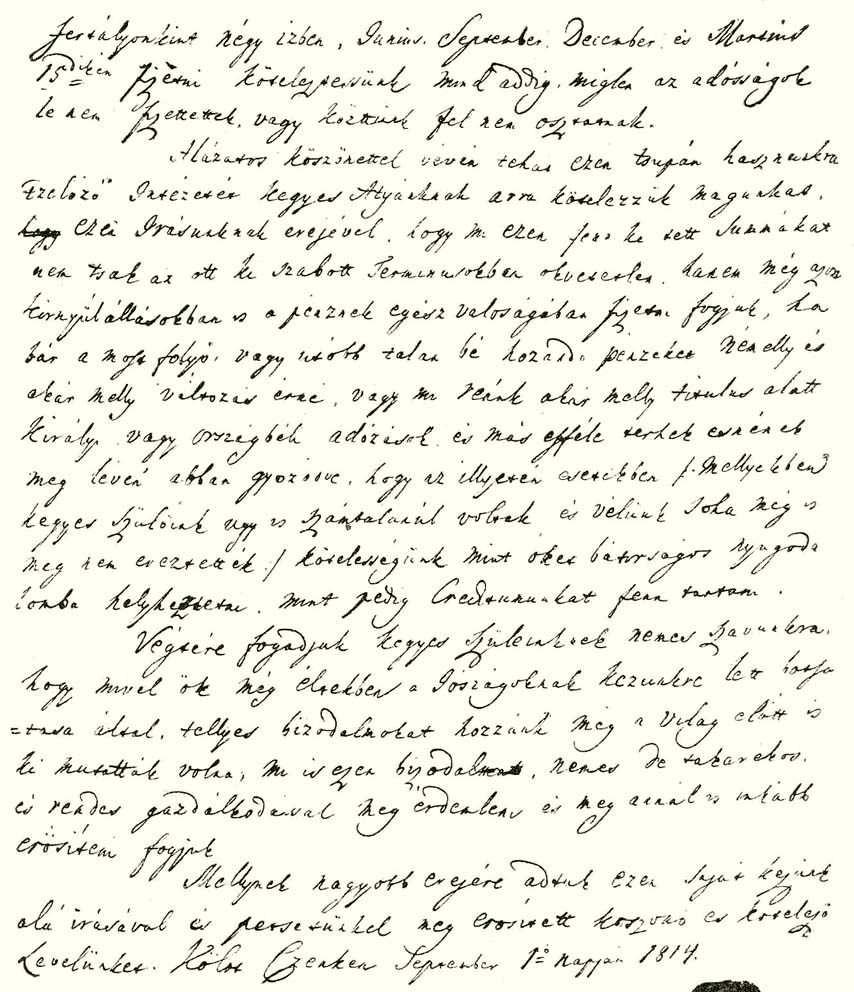 fertályonkint négy izben, Junius. September. December. és Martius
15dikén fizetni köteleztessünk mind addig, miglen az adósságok
le nem fizettettek, vagy köztünk fel nem osztatnak.
Alázatos köszönettel vévén tehát ezen tsupán hasznunkra
Tzélozó Intézetét kegyes Atyánknak arra kötelezzük magunkat,
ezen Irásunknak erejével, hogy mi ezen fenn ki tett Summákat
nem tsak az ott ki szabott Terminusokban okvetetlen, hanem még azon
környülállásokban is a pénznek egész valoságában fizetni fogjuk, ha
bár a most folyó, vagy utóbb talán bé hozandó pénzeket némelly és
akár melly változás érné, vagy mi reánk akár melly titulus alatt
Királyi vagy országbéli adózások és más efféle terhek esnének
meg lévén abban gyözödve, hogy az illyetén esetekben /: Mellyekben
kegyes Szülöink ugy is számtalanúl voltak és vélünk soha még is
meg nem éreztették :/ kötelességünk mint öket bátorságos nyugoda
lomba helyheztetni, mint pedig Creditumunkat fenn tartani.
Végtére fogadjuk kegyes Szüleinknek nemes szavunkra,
hogy mivel ök még éltekben a Joszágoknak kezünkre lett botsá
=tása által, tellyes bizodalmokat hozzánk még a Világ elött is
ki mutatták volna, mi is ezen bizodalmat, nemes de takarékos,
és rendes gazdálkodással meg érdemleni és meg annál is inkább
erösíteni fogjuk
Mellynek nagyobb erejére adtuk ezen saját kezünk
alá irásával és petsétünkel meg erösített köszönö és kötelezö
Levelünket. Költ Czenken September 1ö napján 1814.